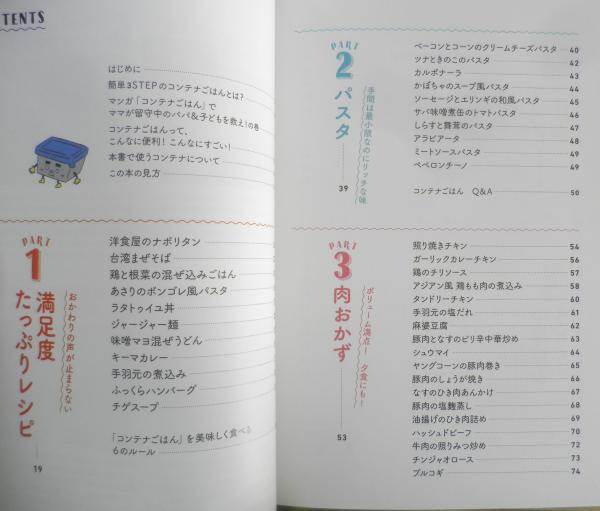 TENTS
はじめに
簡単3STEPのコンテナごはんとは?
マンガ「コンテナごはん」で
ママが留守中のパパ&子どもを救え!の巻
コンテナごはんって、
こんなに便利! こんなにすごい!
本書で使うコンテナについて
この本の見方
PART
1
満足度
たっぷりレシピ
おかわりの声が止まらない
19
洋食屋のナポリタン
台湾まぜそば
鶏と根菜の混ぜ込みごはん
あさりのボンゴレ風パスタ
ラタトゥイユ丼
ジャージャー麺
味噌マヨ混ぜうどん
キーマカレー
手羽元の煮込み
ふっくらハンバーグ
チゲスープ
「コンテナごはん」を美味しく食べる
6のルール
PART
2
パスタ
手間は最小限なのにリッチな味
39
ベーコンとコーンのクリームチーズパスタ 40
ツナときのこのパスタ 42
カルボナーラ 43
かぼちゃのスープ風パスタ 44
ソーセージとエリンギの和風パスタ 45
サバ味噌煮缶のトマトパスタ 46
しらすと舞茸のパスタ 47
アラビアータ 48
ミートソースパスタ 49
ペペロンチーノ 49
コンテナごはん Q&A 50
PART
3
肉おかず
ボリューム満点! 夕食にも!
53
照り焼きチキン 54
ガーリックカレーチキン 56
鶏のチリソース 57
アジアン風 鶏もも肉の煮込み 58
タンドリーチキン 60
手羽元の塩だれ 61
麻婆豆腐 62
豚肉となすのピリ辛中華炒め 63
シュウマイ 64
ヤングコーンの豚肉巻き 65
豚肉のしょうが焼き 66
なすのひき肉あんかけ 67
豚肉の塩麹蒸し 68
油揚げのひき肉詰め 69
ハッシュドビーフ 70
牛肉の照りみつ炒め 72
チンジャオロース 73
プルコギ 74